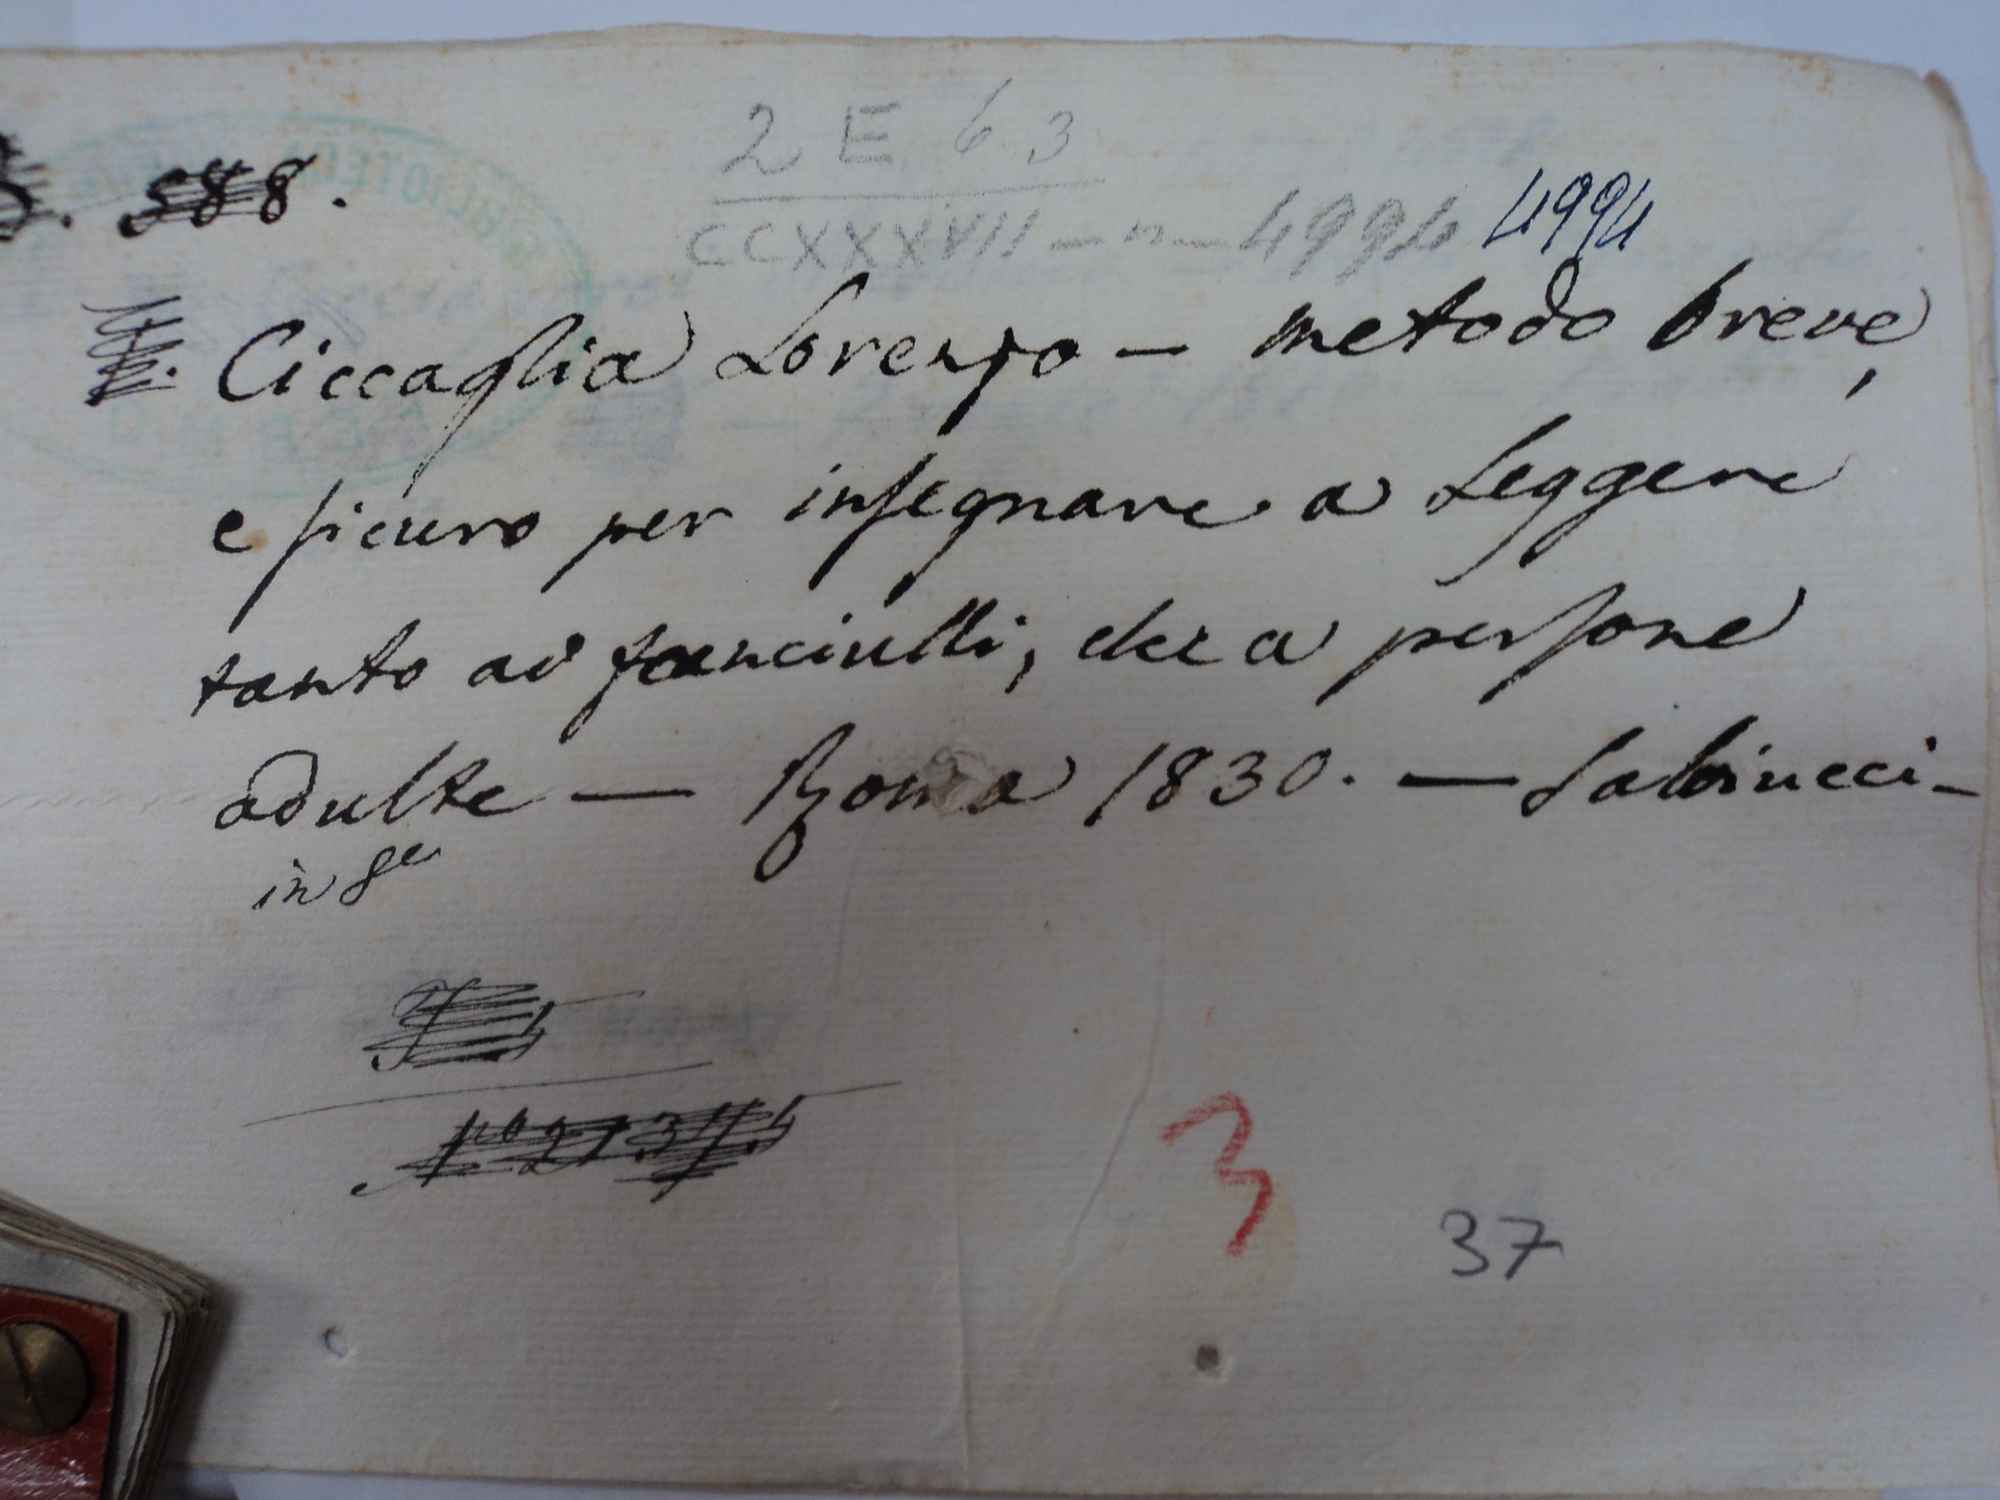 2 E 63
588.
CCXXXVII — n — 4994 4994
Ciccaglia Lorenzo — metodo breve,
e sicuro per insegnare a Leggere
tanto ai fanciulli, che a persone
adulte — Roma 1830. — Salviucci -
in 8
3
37